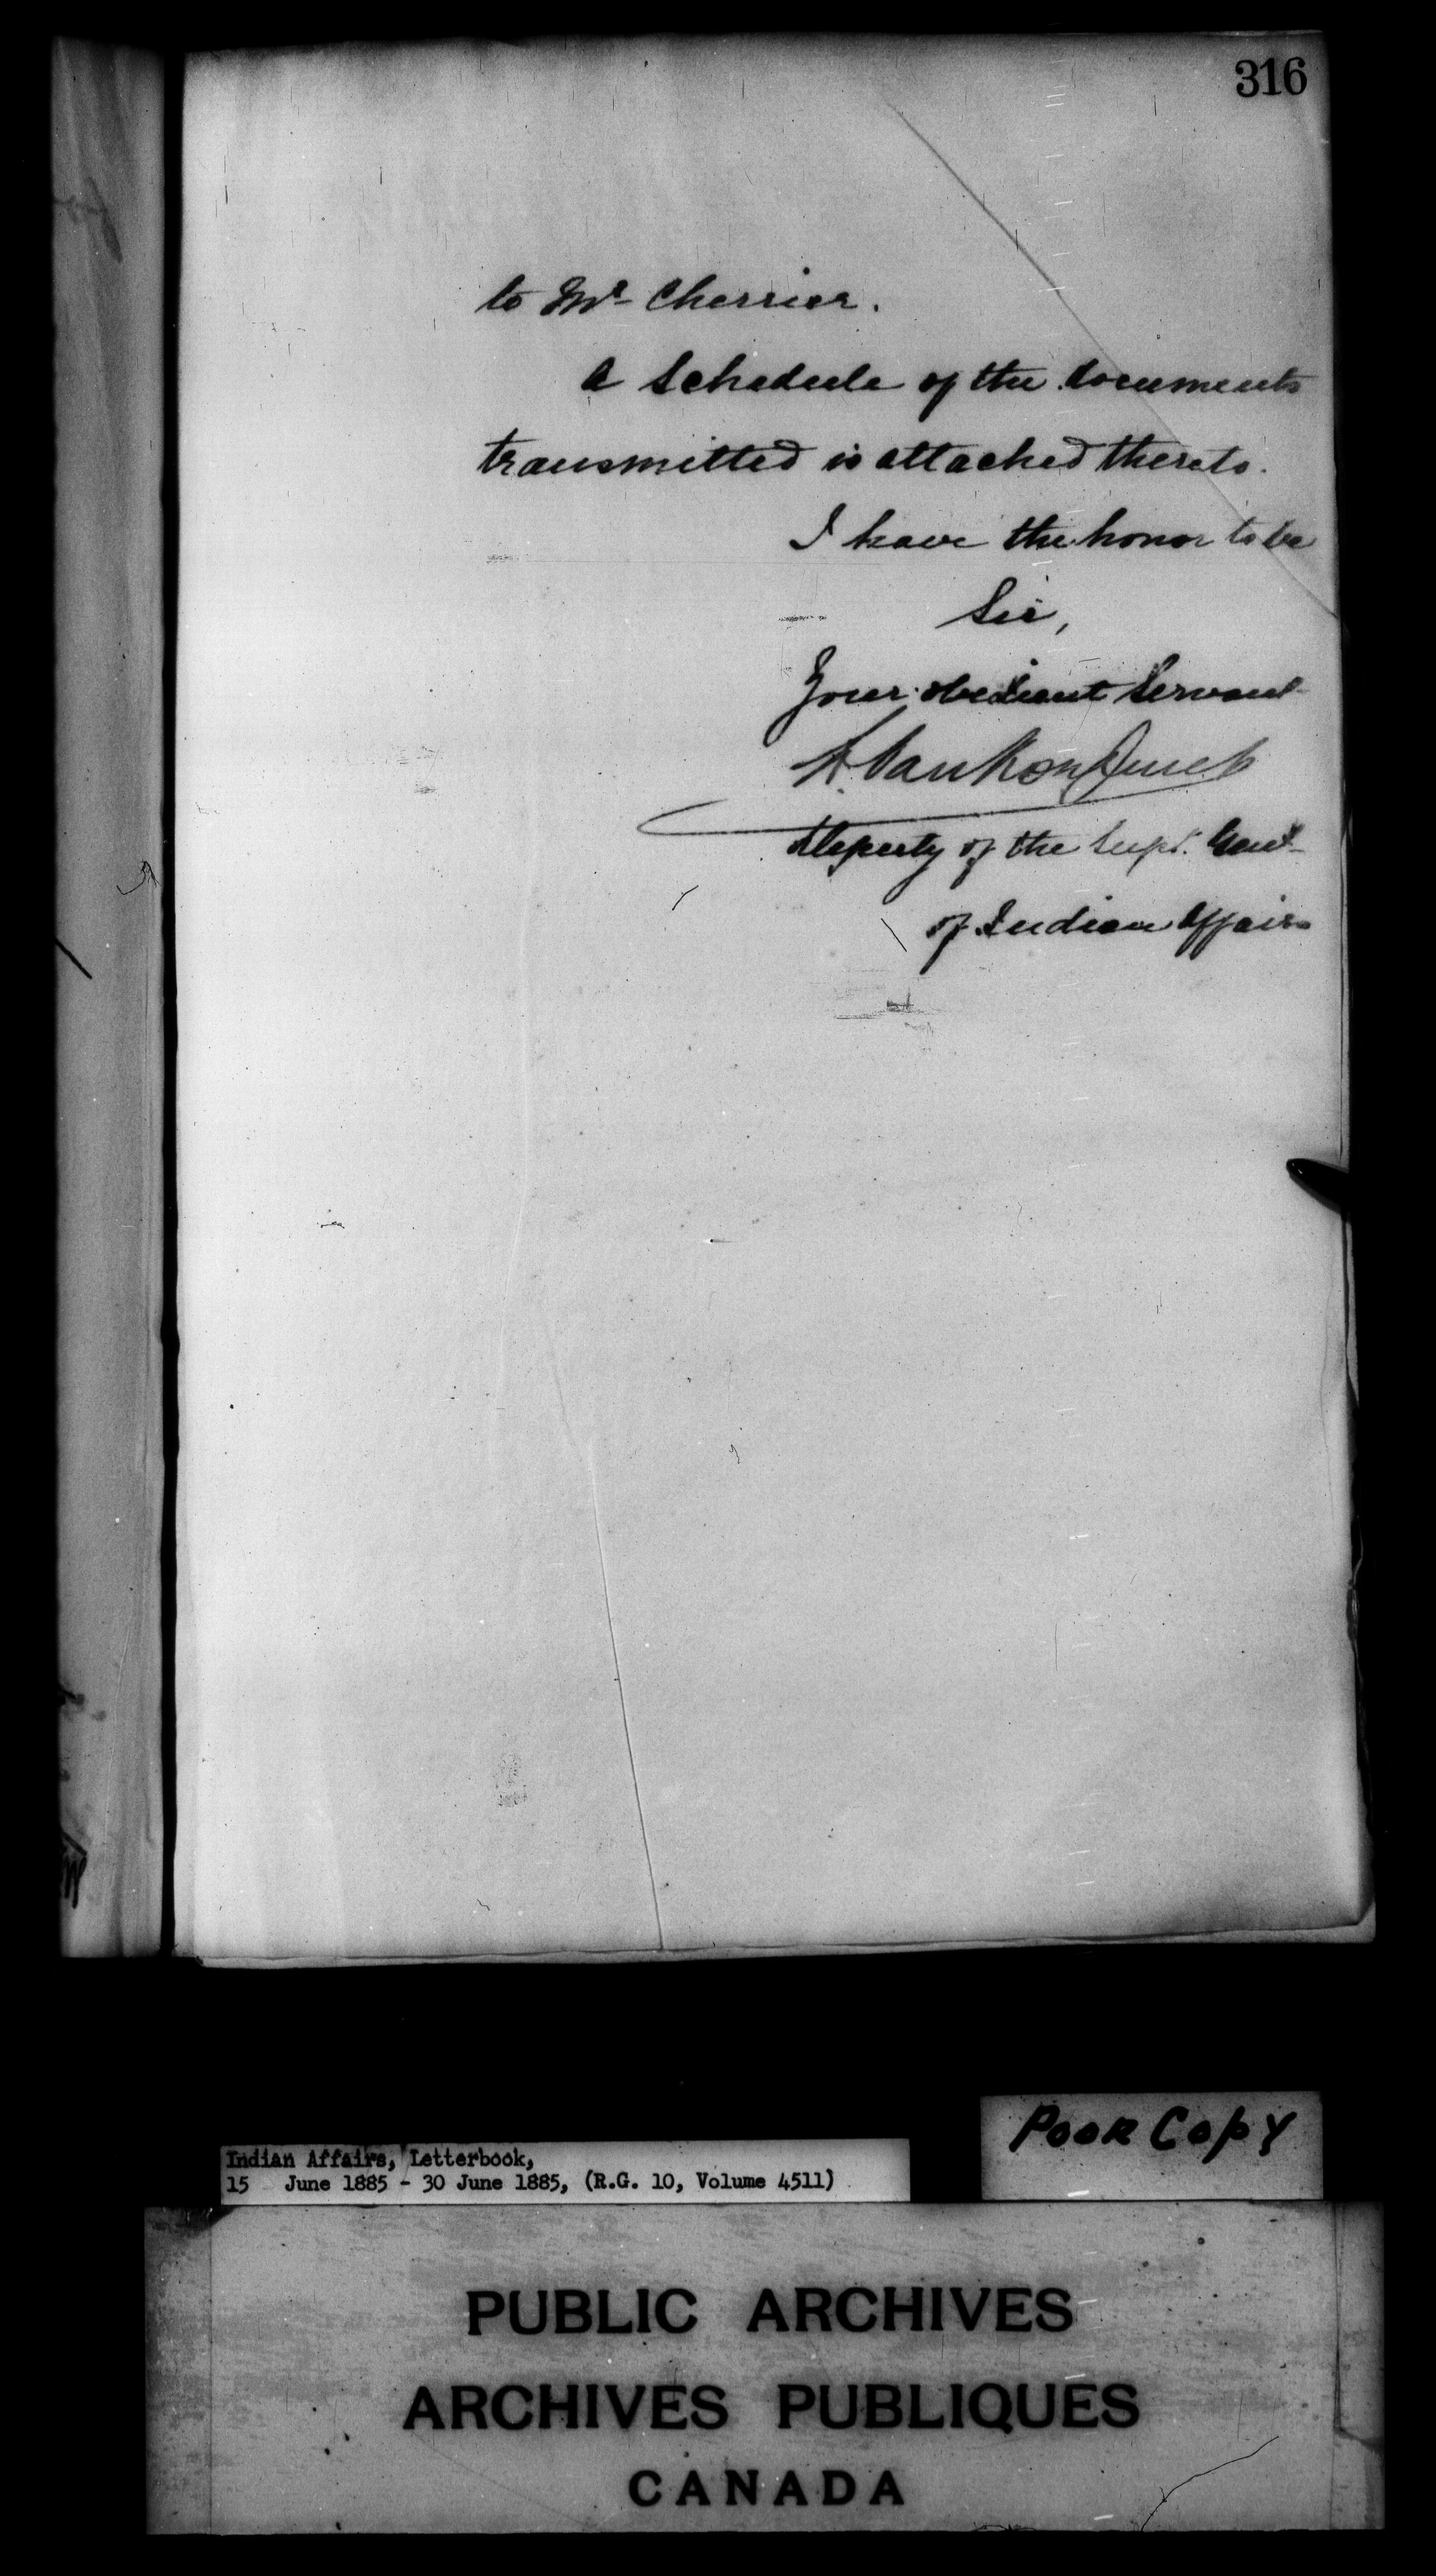 316
to Mr Cherrier.
A Schedule of the documents
transmitted is attached thereto.
I have the honor to be
Sir,
Your obedient Servant
L. VanKoughnet
Deputy of the Supt. Genl
of Indian Affairs
Poor Copy
Indian Affairs, Letterbook,
15 June 1885 - 30 June 1885, (R.G. 10, Volume 4511)
PUBLIC ARCHIVES
ARCHIVES PUBLIQUES
CANADA